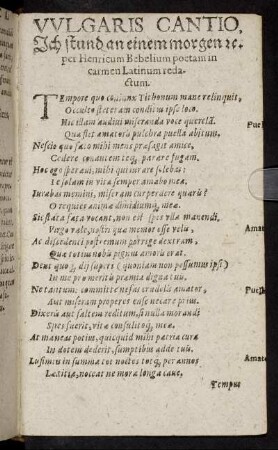 VVLGARIS CANTIO,
Ich stund an einem morgen ꝛc.
per Henricum Bebelium poetam in
carmen Latinum reda-
ctum.
TEmpore quo coniunx Tithonum mane relinquit,
Occulto steteram conditus ipse loco.
Hic illam audiui miseranda voce querelã.
Qua flet amatoris pulchra puella abitum,
Nescio quid sæuo mihi mens præsagit amice,
Cedere conantem teq; parare fugam.
Hoc ego speraui, mihi qui iurare solebas:
Te solam in vita semper amabo mea,
Iurabas memini, miseram cur perdere quæris?
O requies animæ dimidiumq; meæ.
Sic stata sata vocant, non est spes vlla manendi,
Virgo vale, nostri quæ memor esse velis,
Ac discedenti postremum porrige dextram,
Quæ totum nobis pignus amoris erat.
Deus quoq; dij superi (quoniam non possumus ipsi)
In me pro meritis præmia digna tuis,
Ne tantum committe nefas crudelis amator,
Aut miseram properes ense necare prius.
Dixeris aut saltem reditum, si nulla morandi
Spes fuerit, vitæ consulitoq; meæ.
At maneas potius, quicquid mihi patria curæ
In dotem dederit, sumptibus adde tuis.
Lusimus in summa tot noctes totq; per annos
Lætitia, noceat ne mora longa caue,
Tempus
Amat
Puell
Amat
Puell
Amato